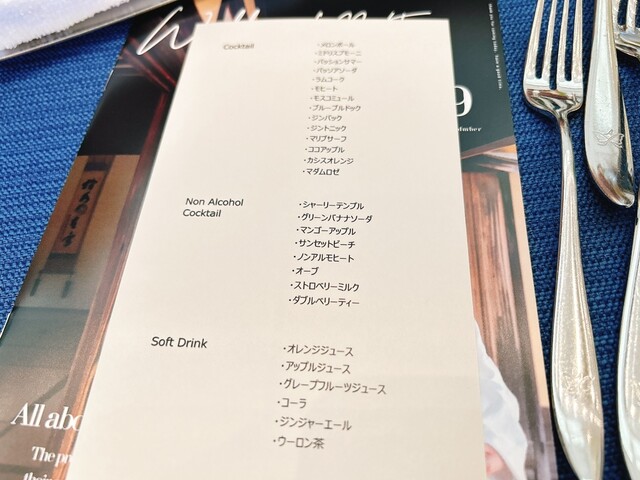 Cocktail
・メロンボール
・ミドリスプモーニ
・パッションサマー
・パッソアソーダ
・ラムコーク
・モヒート
・モスコミュール
・ブルーブルドック
・ジンバック
・ジントニック
・マリブサーフ
・ココアップル
・カシスオレンジ
・マダムロゼ
Non Alcohol
Cocktail
・シャーリーテンプル
・グリーンバナナソーダ
・マンゴーアップル
・サンセットピーチ
・ノンアルモヒート
・オーブ
・ストロベリーミルク
・ダブルベリーティー
Soft Drink
・オレンジジュース
・アップルジュース
・グレープフルーツジュース
・コーラ
・ジンジャーエール
・ウーロン茶
9
All abo
The p